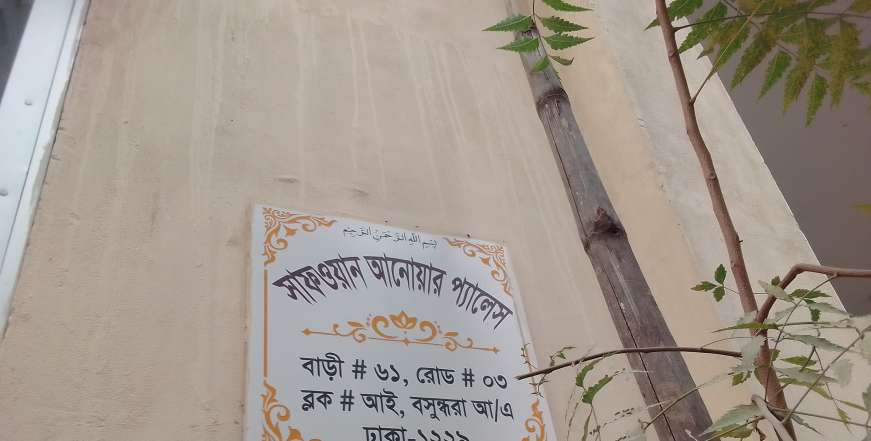 بسم الله الرحمن الرحيم
সাফওয়ান আনোয়ার প্যালেস
বাড়ী # ৬১, রোড # ০৩
ব্লক # আই, বসুন্ধরা আ/এ
ঢাকা-১২২৯